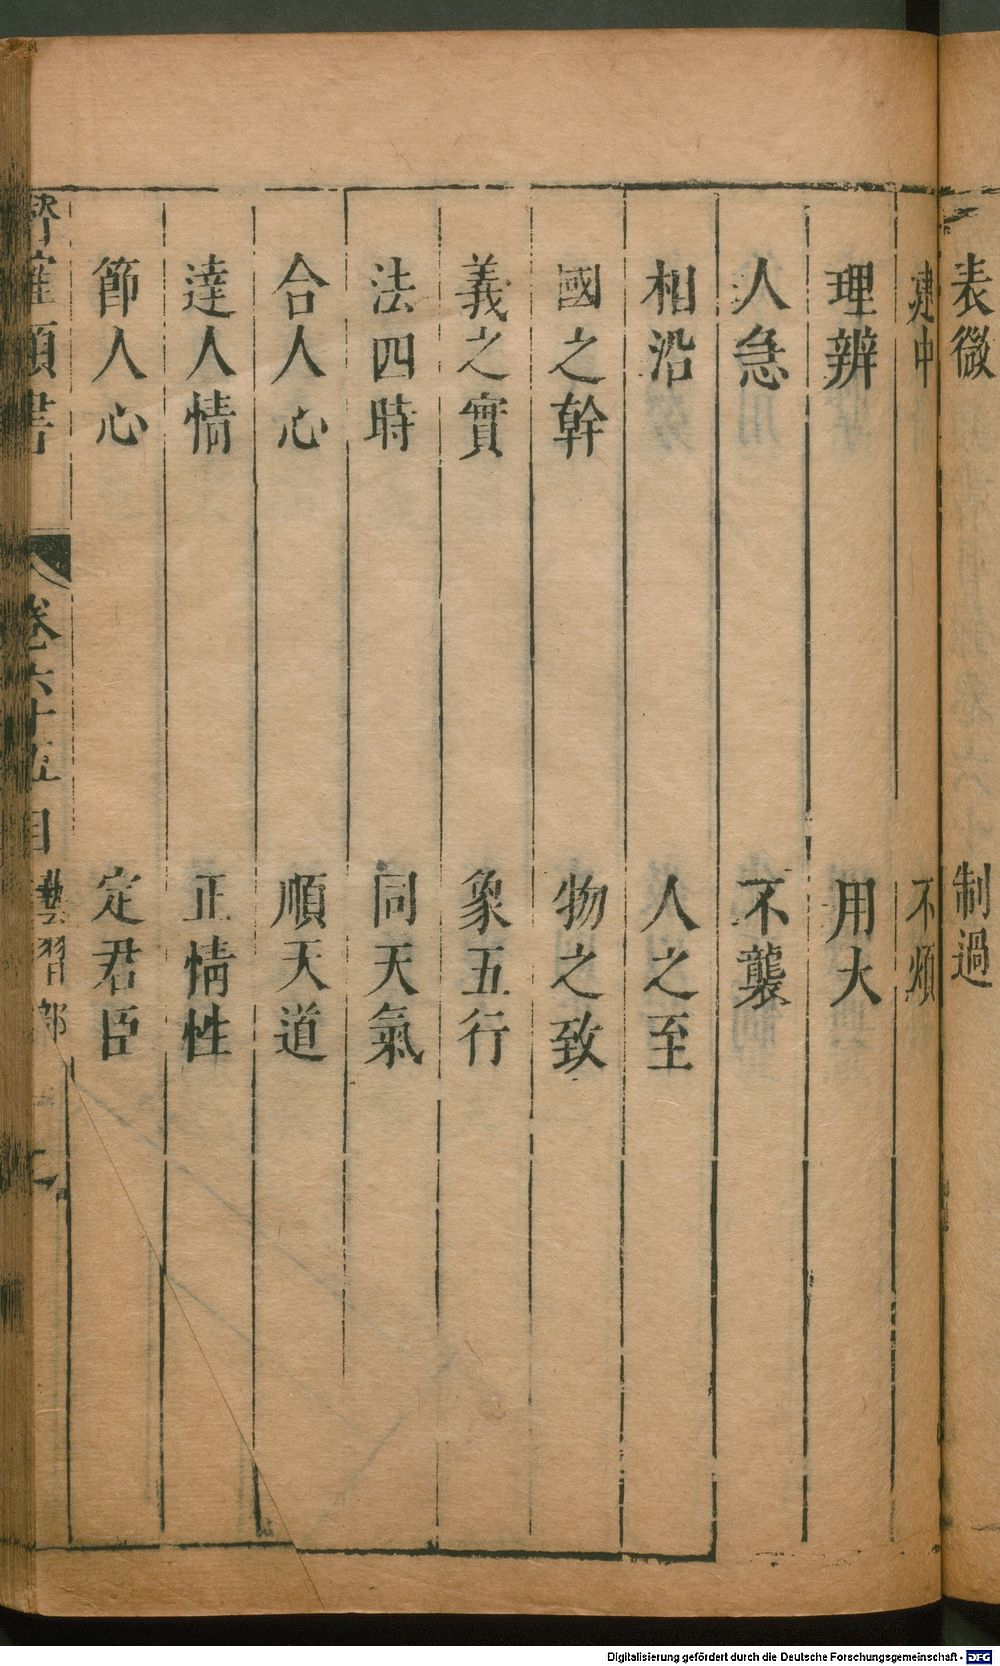 表微 制過
建中 不煩
理辨 用大
人急 不襲
相沿 人之至
國之幹 物之致
義之實 象五行
法四時 同天氣
合人心 順天道
達人情 正情性
節人心 定君臣
類書 卷六十五 目 藝習部
Digitalisierung gefördert durch die Deutsche Forschungsgemeinschaft - DFG